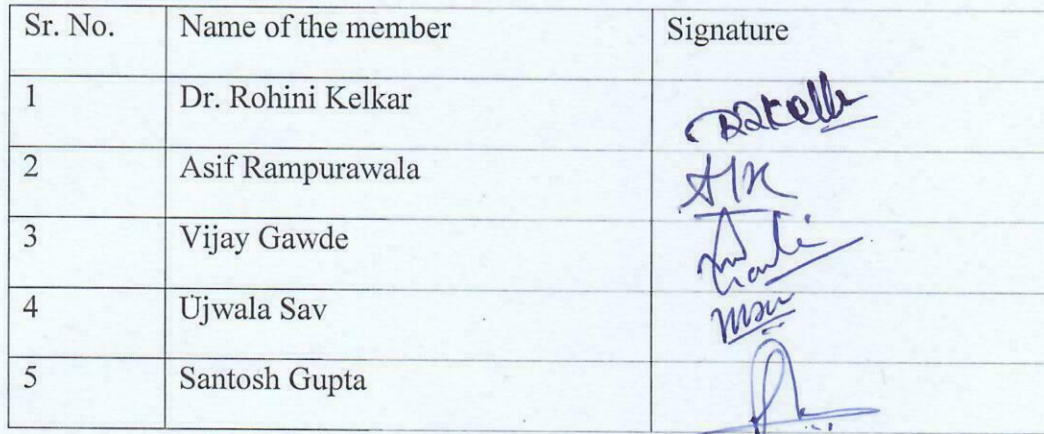 Sr. No. Name of the member Signature
1 Dr. Rohini Kelkar
2 Asif Rampurawala
3 Vijay Gawde
4 Ujwala Sav
5 Santosh Gupta